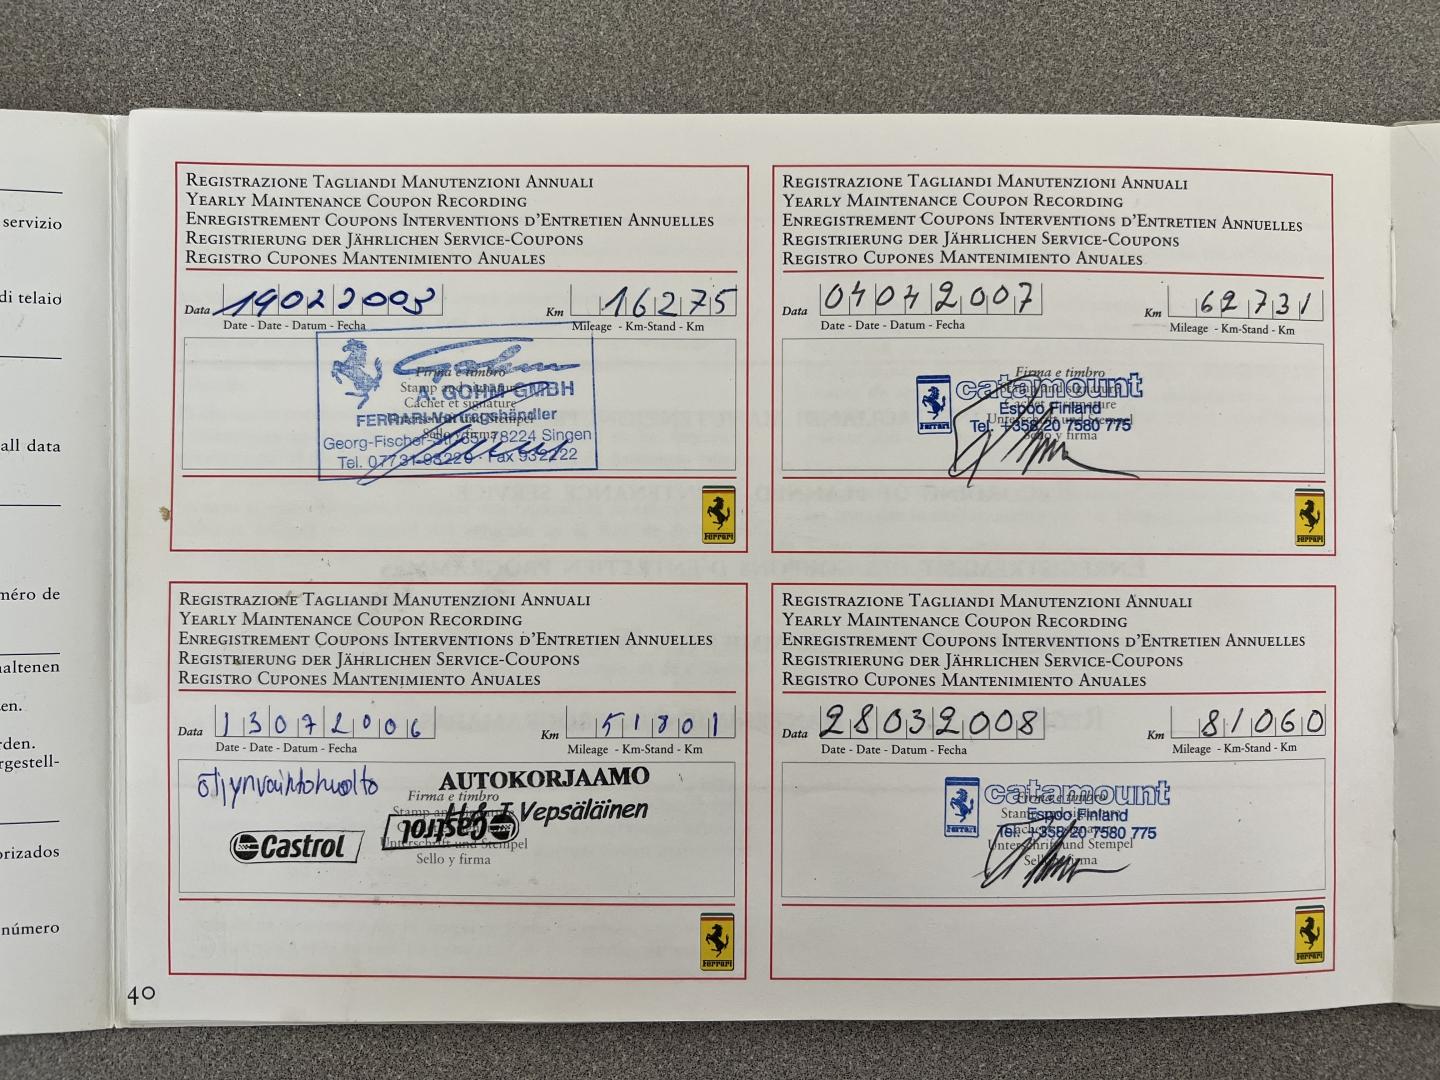 servizio
di telaio
all data
méro de
naltenen
en.
rden.
rgestell-
orizados
número
REGISTRAZIONE TAGLIANDI MANUTENZIONI ANNUALI
YEARLY MAINTENANCE COUPON RECORDING
ENREGISTREMENT COUPONS INTERVENTIONS D'ENTRETIEN ANNUELLES
REGISTRIERUNG DER JÄHRLICHEN SERVICE-COUPONS
REGISTRO CUPONES MANTENIMIENTO ANUALES
Data 19022003 Km 16275
Date - Date - Datum - Fecha Mileage - Km-Stand - Km
Gohm
Firma e timbro
Stamp and signature
A. GOHM GMBH
Cachet et signature
FERRARI-Vertragshändler
Stempel
Georg-Fischer-Str. 65 · 78224 Singen
Sello y firma
Tel. 07731-93220 · Fax 932222
Ferrari
REGISTRAZIONE TAGLIANDI MANUTENZIONI ANNUALI
YEARLY MAINTENANCE COUPON RECORDING
ENREGISTREMENT COUPONS INTERVENTIONS D'ENTRETIEN ANNUELLES
REGISTRIERUNG DER JÄHRLICHEN SERVICE-COUPONS
REGISTRO CUPONES MANTENIMIENTO ANUALES
Data 04042007 Km 62731
Date - Date - Datum - Fecha Mileage - Km-Stand - Km
Firma e timbro
catamount
Stamp and signature
Cachet et signature
Espoo Finland
Unterschrift und Stempel
Tel. +358 20 7580 775
Sello y firma
Ferrari
Ferrari
REGISTRAZIONE TAGLIANDI MANUTENZIONI ANNUALI
YEARLY MAINTENANCE COUPON RECORDING
ENREGISTREMENT COUPONS INTERVENTIONS D'ENTRETIEN ANNUELLES
REGISTRIERUNG DER JÄHRLICHEN SERVICE-COUPONS
REGISTRO CUPONES MANTENIMIENTO ANUALES
Data 13072006 Km 51801
Date - Date - Datum - Fecha Mileage - Km-Stand - Km
öljynvaihtohuolto AUTOKORJAAMO
Firma e timbro
Vepsäläinen
Castrol Castrol
Unterschrift und Stempel
Sello y firma
Ferrari
REGISTRAZIONE TAGLIANDI MANUTENZIONI ANNUALI
YEARLY MAINTENANCE COUPON RECORDING
ENREGISTREMENT COUPONS INTERVENTIONS D'ENTRETIEN ANNUELLES
REGISTRIERUNG DER JÄHRLICHEN SERVICE-COUPONS
REGISTRO CUPONES MANTENIMIENTO ANUALES
Data 28032008 Km 81060
Date - Date - Datum - Fecha Mileage - Km-Stand - Km
Firma e timbro
catamount
Stamp and signature
Espoo Finland
Tel. +358 20 7580 775
Unterschrift und Stempel
Sello y firma
Ferrari
Ferrari
40